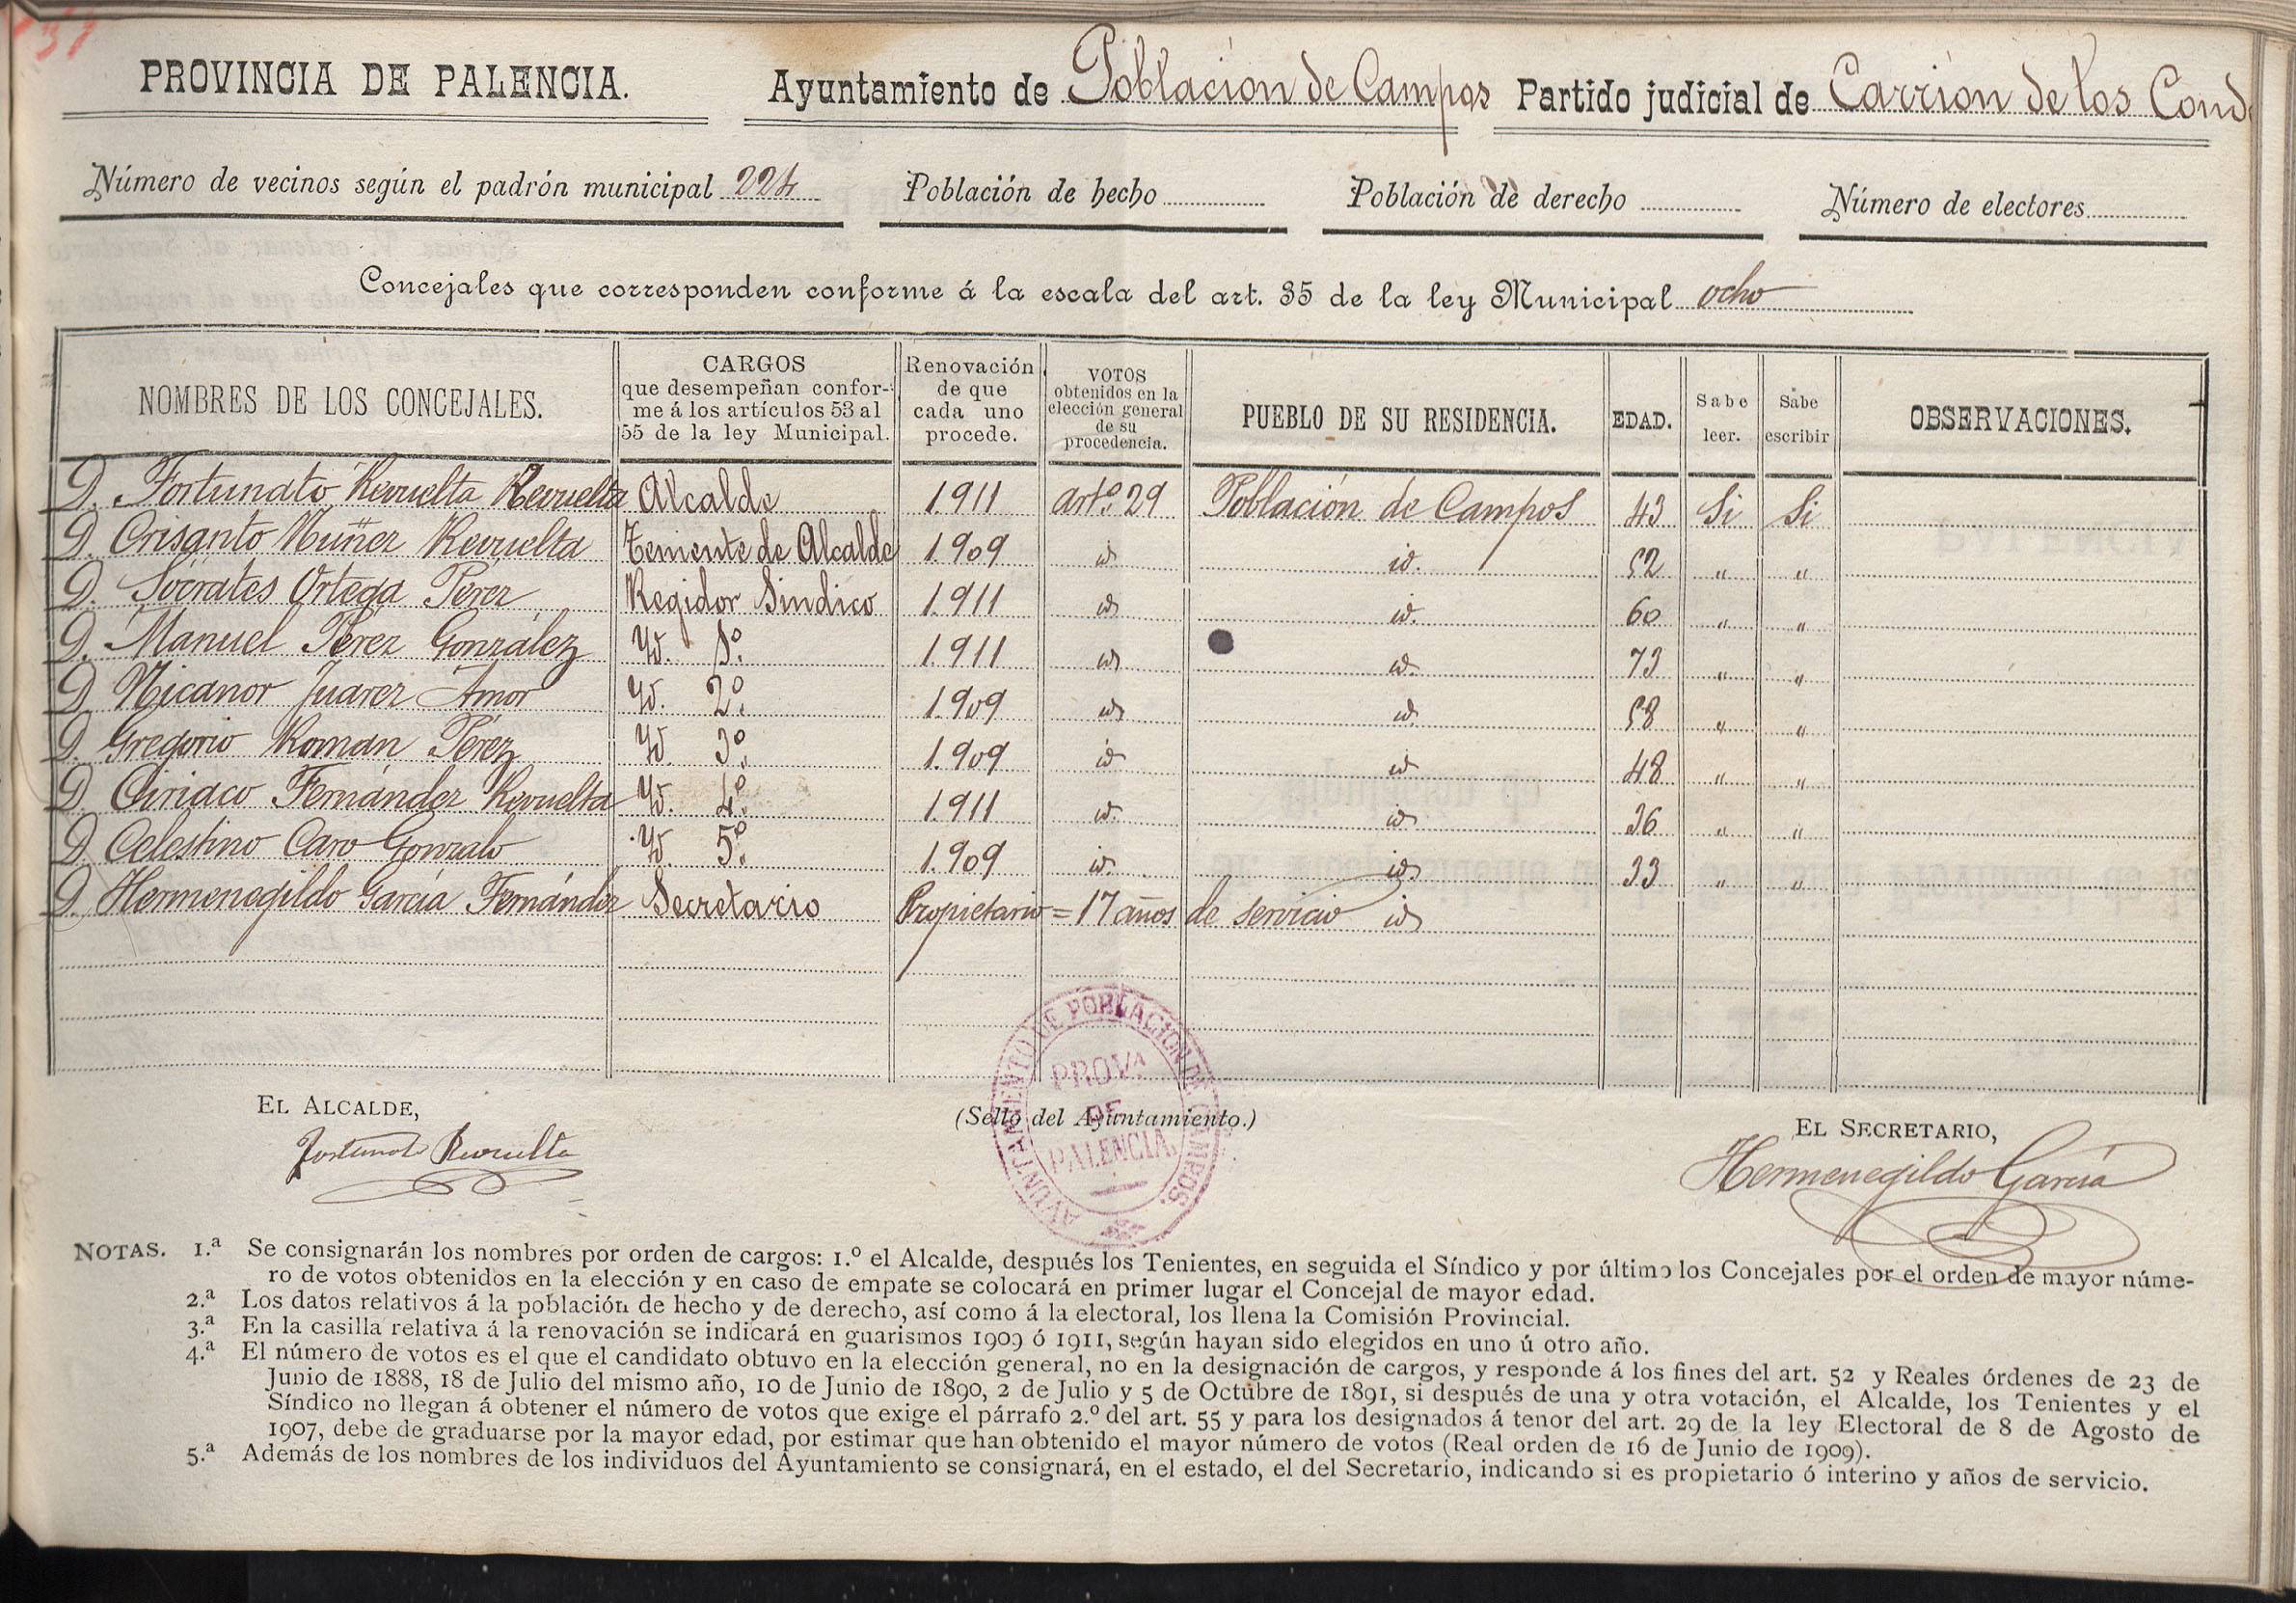 37
PROVINCIA DE PALENCIA. Ayuntamiento de Población de Campos Partido judicial de Carrión de los Cond
Número de vecinos según el padrón municipal 224 Población de hecho Población de derecho Número de electores
Concejales que corresponden conforme á la escala del art. 35 de la ley Municipal ocho
NOMBRES DE LOS CONCEJALES. CARGOS que desempeñan confor-me á los artículos 53 al 55 de la ley Municipal. Renovación de que cada uno procede. VOTOS obtenidos en la elección general de su procedencia. PUEBLO DE SU RESIDENCIA. EDAD. Sabe leer. Sabe escribir OBSERVACIONES.
D. Fortunato Revuelta Revuelta Alcalde 1911 artº. 29 Población de Campos 43 Si Si
D. Crisanto Núñez Revuelta Teniente de Alcalde 1.909 id id. 52 " "
D. Sócrates Ortega Pérez Regidor Sindico 1911 id id. 60 " "
D. Manuel Pérez González Yd. 1º. 1.911 id id. 73 " "
D. Nicanor Juarez Amor Yd. 2º. 1.909 id id. 58 " "
D. Gregorio Román Pérez Yd 3º. 1.909 id id 48 " "
D. Ciriaco Fernández Revuelta Yd. 4º. 1.911 id. id 36 " "
D. Celestino Caro Gonzalo Yd. 5º. 1.909 id. id. 33 " "
D. Hermenegildo García Fernández Secretario Propietario = 17 años de servicio id
EL ALCALDE,
(Sello del Ayuntamiento.)
EL SECRETARIO,
Fortunato Revuelta
Hermenegildo García
AYUNTAMIENTO DE POBLACIÓN DE CAMPOS.
PROVA
DE
PALENCIA.
NOTAS. 1.ª Se consignarán los nombres por orden de cargos: 1.º el Alcalde, después los Tenientes, en seguida el Síndico y por último los Concejales por el orden de mayor núme-
ro de votos obtenidos en la elección y en caso de empate se colocará en primer lugar el Concejal de mayor edad.
2.ª Los datos relativos á la población de hecho y de derecho, así como á la electoral, los llena la Comisión Provincial.
3.ª En la casilla relativa á la renovación se indicará en guarismos 1909 ó 1911, según hayan sido elegidos en uno ú otro año.
4.ª El número de votos es el que el candidato obtuvo en la elección general, no en la designación de cargos, y responde á los fines del art. 52 y Reales órdenes de 23 de
Junio de 1888, 18 de Julio del mismo año, 10 de Junio de 1890, 2 de Julio y 5 de Octubre de 1891, si después de una y otra votación, el Alcalde, los Tenientes y el
Síndico no llegan á obtener el número de votos que exige el párrafo 2.º del art. 55 y para los designados á tenor del art. 29 de la ley Electoral de 8 de Agosto de
1907, debe de graduarse por la mayor edad, por estimar que han obtenido el mayor número de votos (Real orden de 16 de Junio de 1909).
5.ª Además de los nombres de los individuos del Ayuntamiento se consignará, en el estado, el del Secretario, indicando si es propietario ó interino y años de servicio.